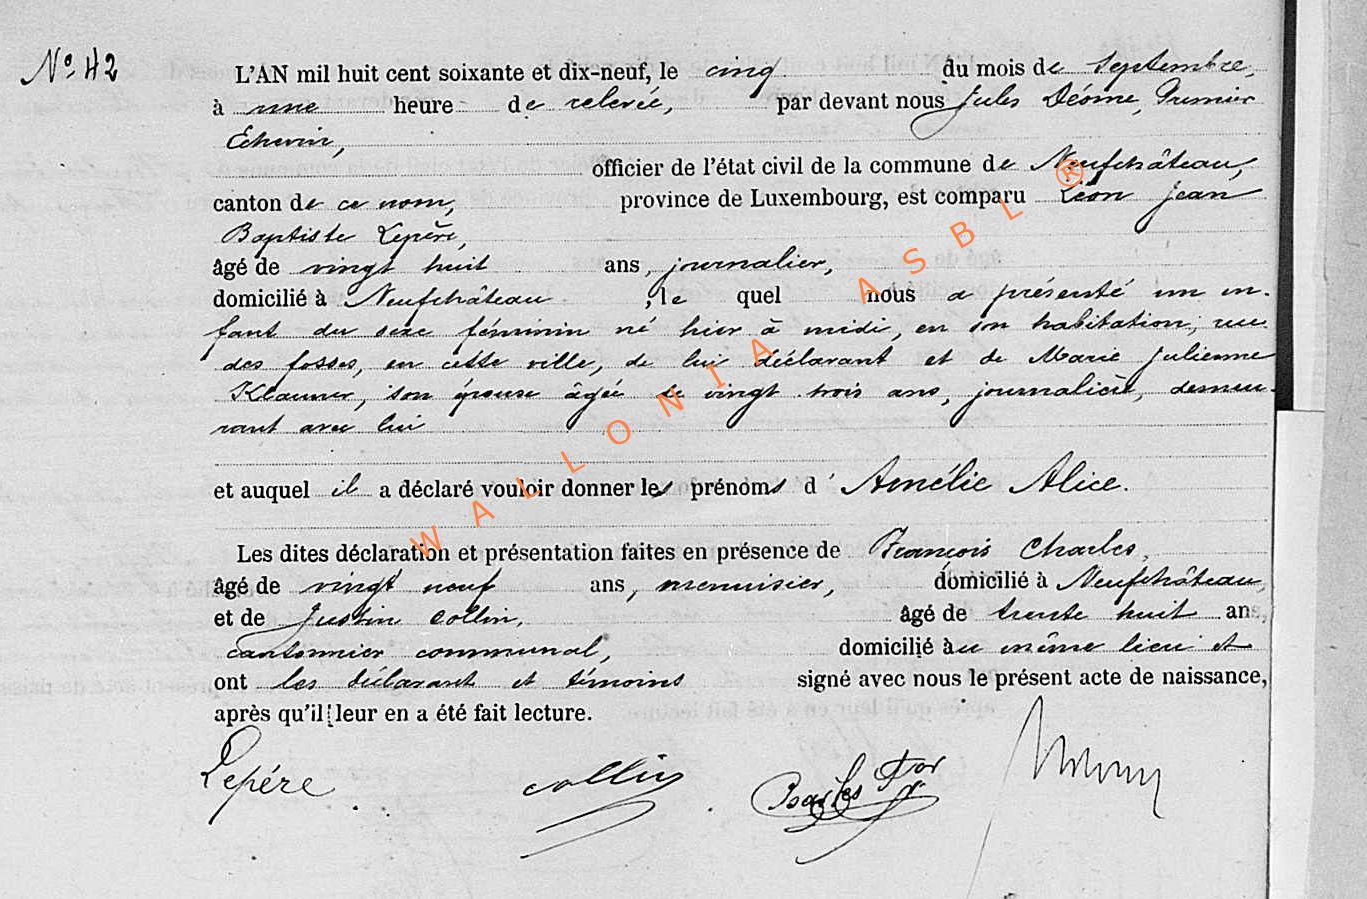 N° 42
L'AN mil huit cent soixante et dix-neuf, le cinq du mois de Septembre,
à une heure de relevée, par devant nous Jules Déome, Premier
Echevin,
officier de l'état civil de la commune de Neufchâteau,
canton de ce nom, province de Luxembourg, est comparu Léon Jean
Baptiste Lepère,
âgé de vingt huit ans, journalier,
domicilié à Neufchâteau, le quel nous a présenté un en-
fant du sexe féminin né hier à midi, en son habitation, rue
des fosses, en cette ville, de lui déclarant et de Marie Julienne
Klauner, son épouse âgée de vingt trois ans, journalière, demeu-
rant avec lui
et auquel il a déclaré vouloir donner les prénoms d'Amélie Alice.
Les dites déclaration et présentation faites en présence de François Charles,
âgé de vingt neuf ans, menuisier, domicilié à Neufchâteau,
et de Justin Collin, âgé de trente huit ans,
cantonnier communal, domicilié au même lieu et
ont les déclarant et témoins signé avec nous le présent acte de naissance,
après qu'il leur en a été fait lecture.
Lepére. collin Charles For
WALLONIA ASBL ®